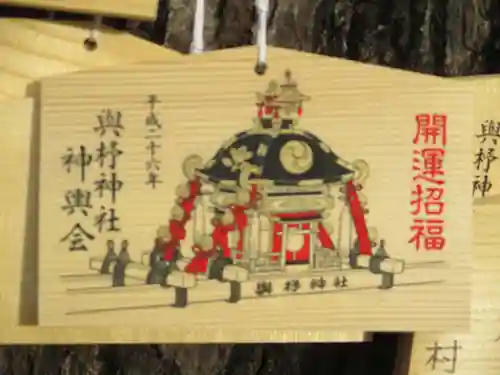 開運招福
平成二十六年
與杼神社
神輿会
與杼神社
與杼神
村